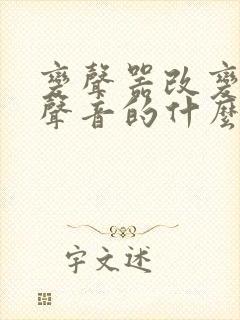 變聲器改變
聲音的什麼
字文述